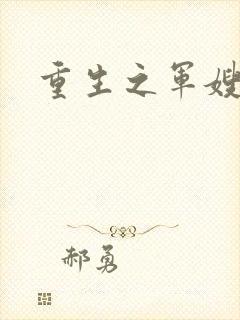 重生之军嫂
郝勇